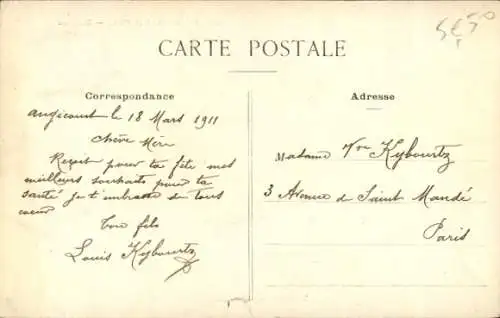 CARTE POSTALE
Correspondance
Angicourt le 18 Mars 1911
Chère Mère
Reçois pour ta fête mes
meilleurs souhaits pour ta
santé je t'embrasse de tous
coeur
Ton fils
Louis Kybourtz
Adresse
Madame Vve Kybourtz
3 Avenue de Saint Mandé
Paris